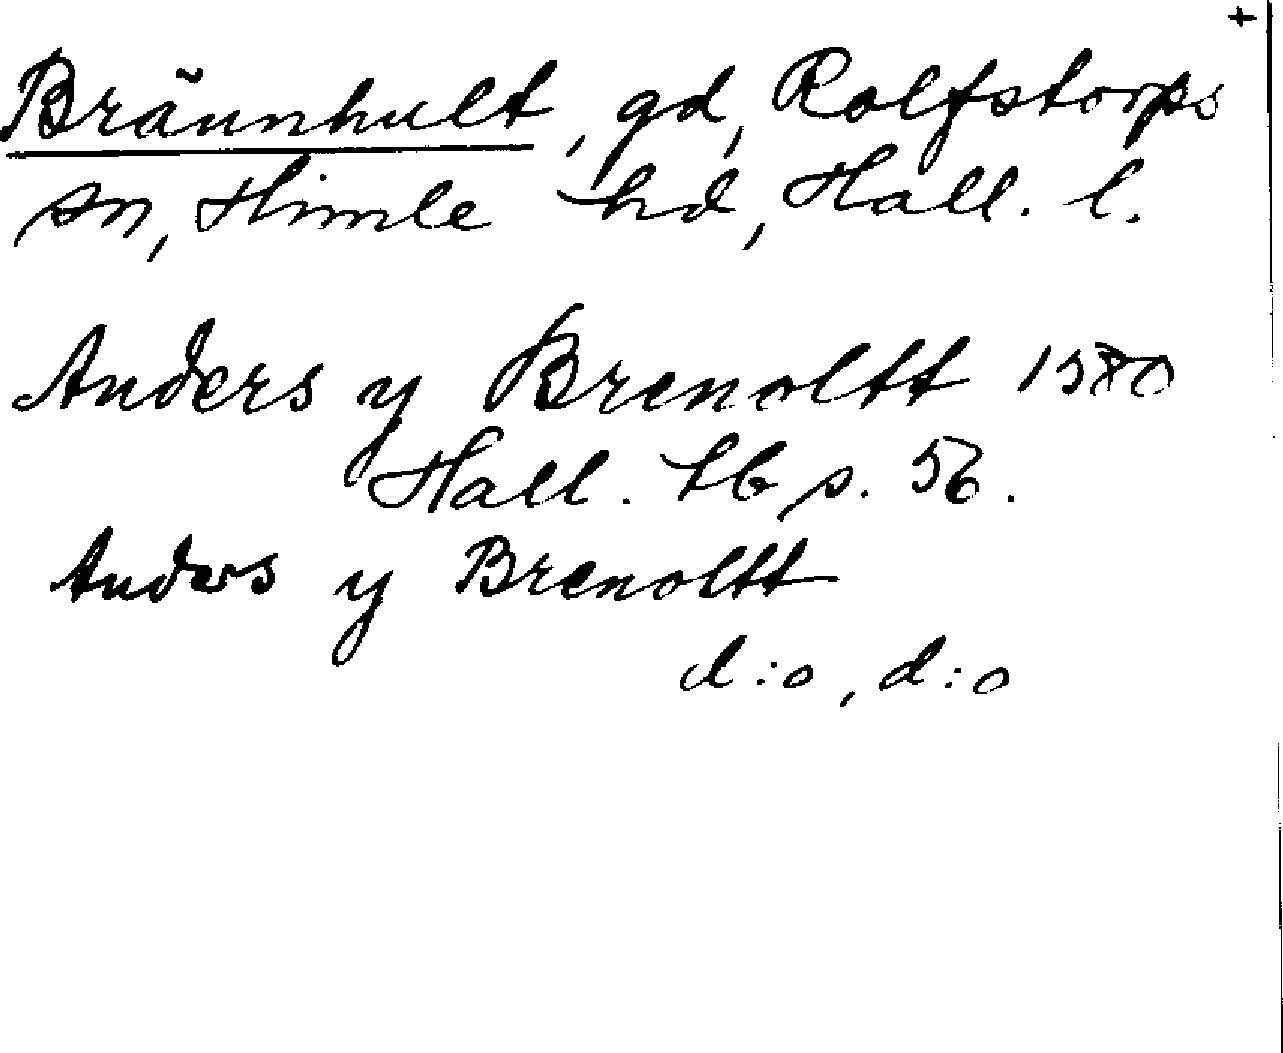 +
Brännhult, gd, Rolfstorps
sn, Himle hd, Hall. l.
Anders y Brenoltt 1580
Hall. lb s. 56.
Anders y Brenoltt
d:o, d:o